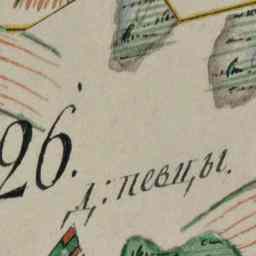 26.
Д: певцы.